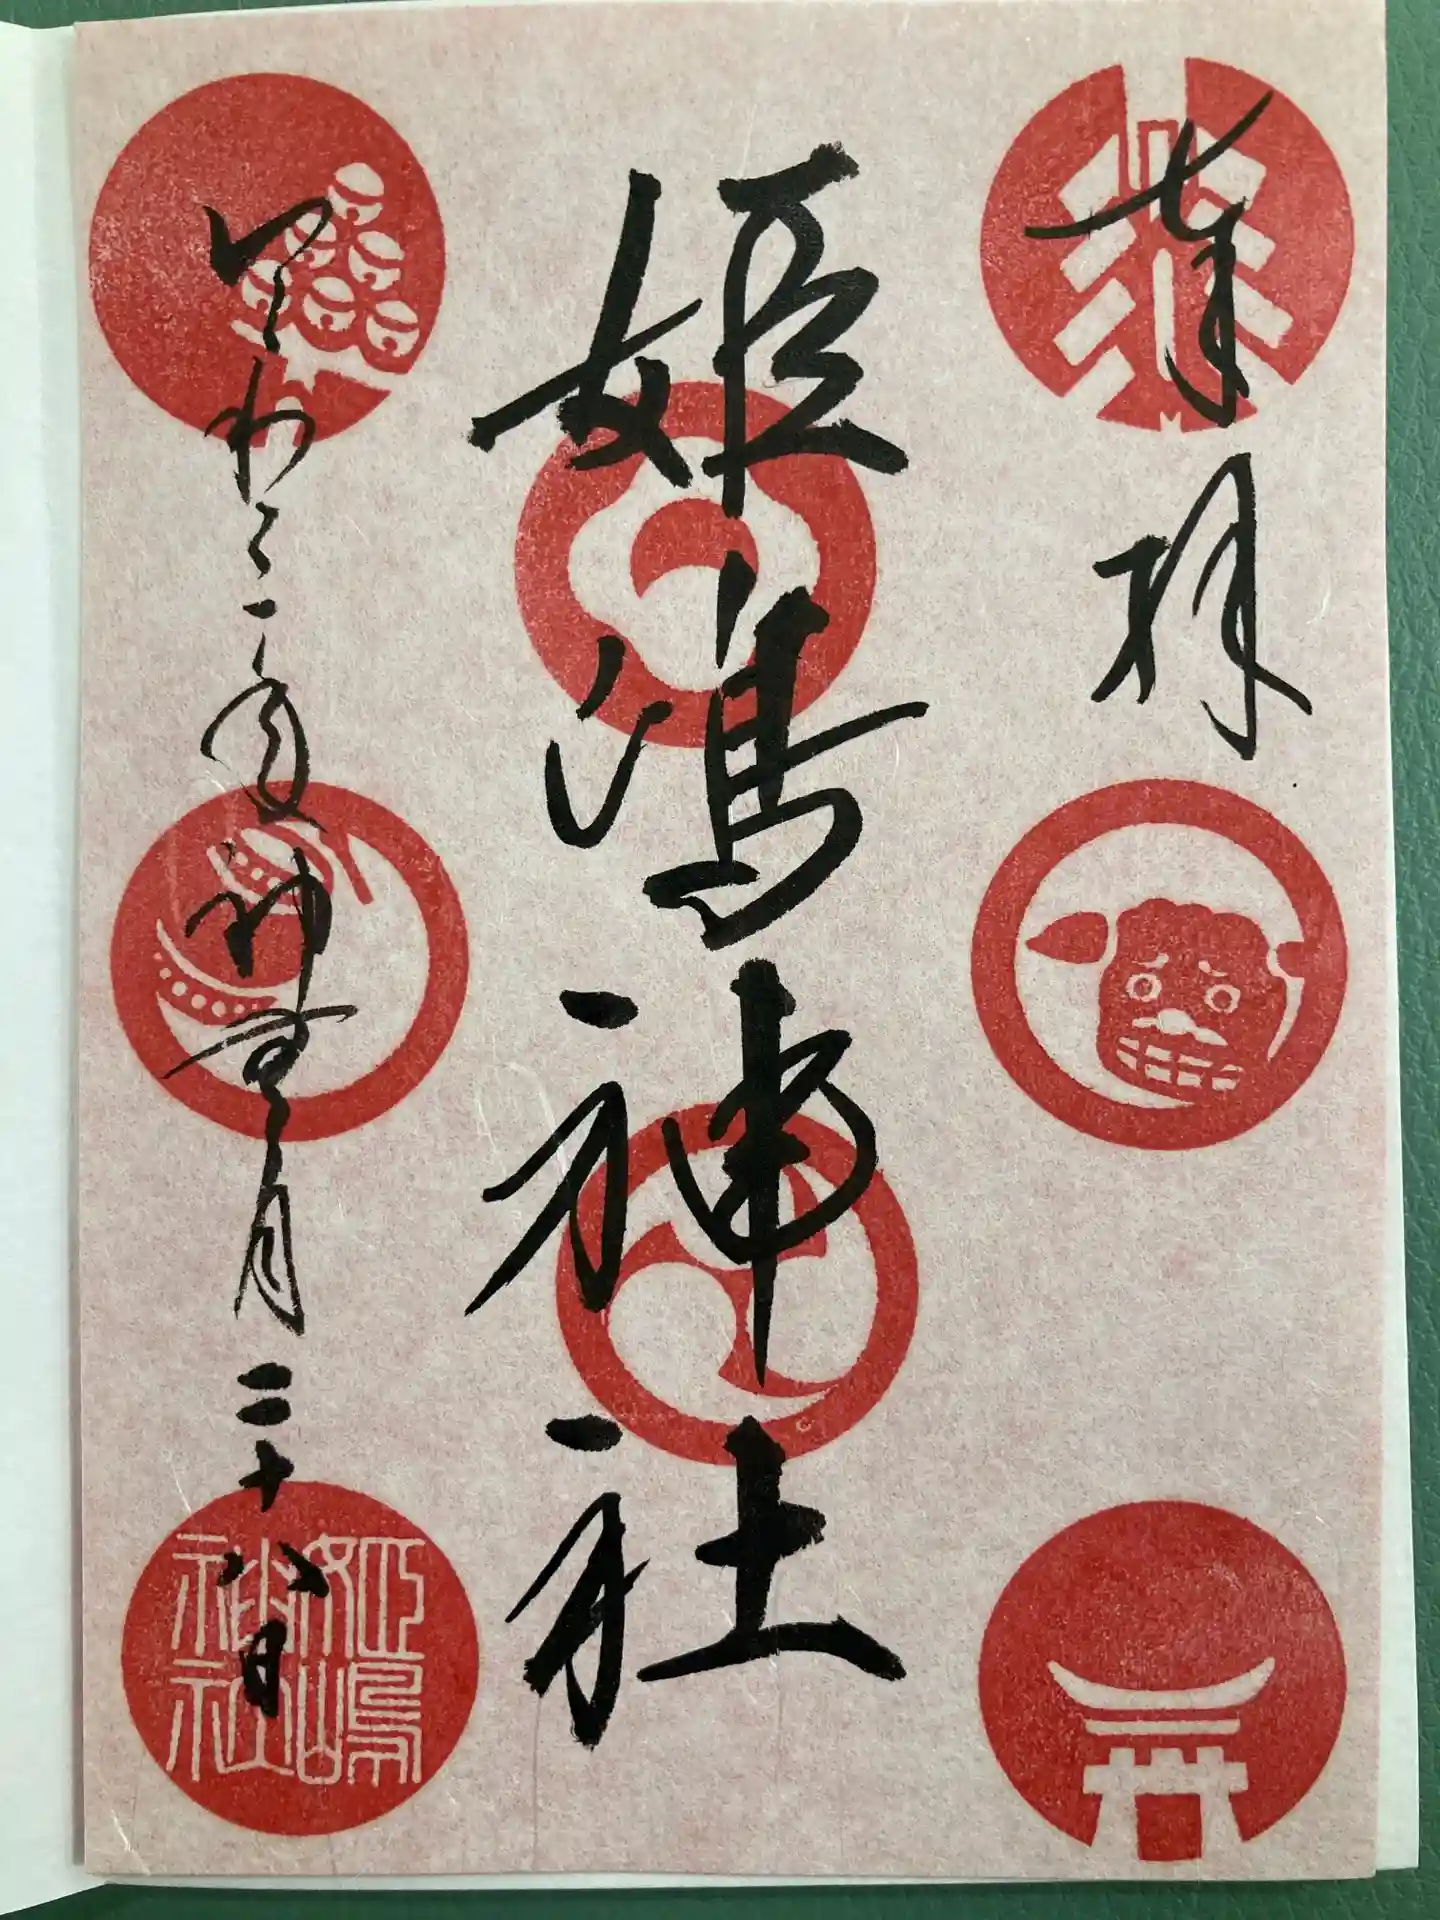 奉拝
姫嶋神社
令和二 神無月二十八日
姫嶋
神社